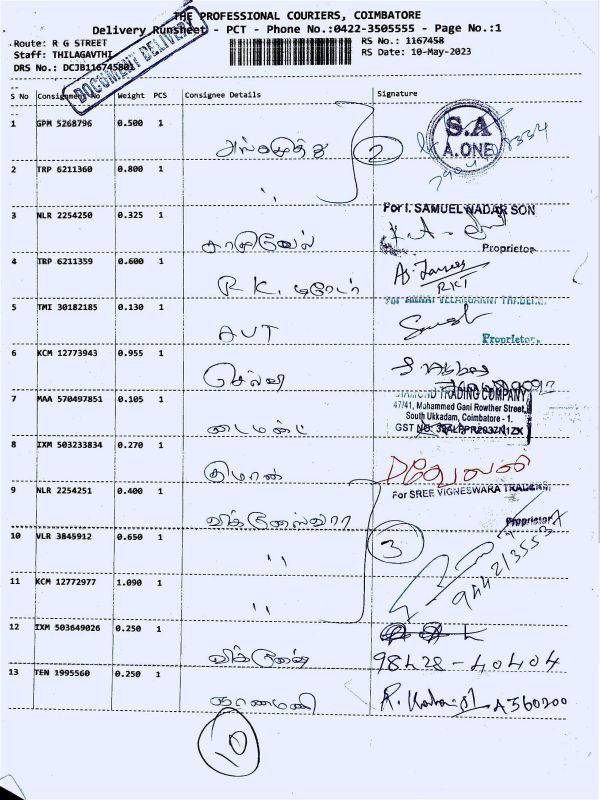 THE PROFESSIONAL COURIERS, COIMBATORE
Delivery Runsheet - PCT - Phone No.:0422-3505555 - Page No.:1
Route: R G STREET
Staff: THILAGAVTHI
DRS No.: DCJB116745801
RS No.: 1167458
RS Date: 10-May-2023
DOCUMENT DELIVERY
S No Consignment No Weight PCS Consignee Details Signature
1 GPM 5268796 0.500 1
2
S.A
A.ONE
2 TRP 6211360 0.800 1 "
3 NLR 2254250 0.325 1
For I. SAMUEL NADAR SON
Proprietor
4 TRP 6211359 0.600 1 R.K. டிரேடர்
RKT
5 TMI 30182185 0.130 1 AVT
Proprietor
6 KCM 12773943 0.955 1 செல்வி
7 MAA 570497851 0.105 1 டைமண்ட்
DIAMOND TRADING COMPANY
47/41, Muhammed Gani Rowther Street,
South Ukkadam, Coimbatore - 1.
8 IXM 503233834 0.270 1
9 NLR 2254251 0.400 1 விக்னேஸ்வரா
For SREE VIGNESWARA TRADERS
Proprietor
10 VLR 3845912 0.650 1 "
3
11 KCM 12772977 1.090 1 "
12 IXM 503649026 0.250 1 விக்னேஷ்
98428-40404
13 TEN 1995560 0.250 1
10